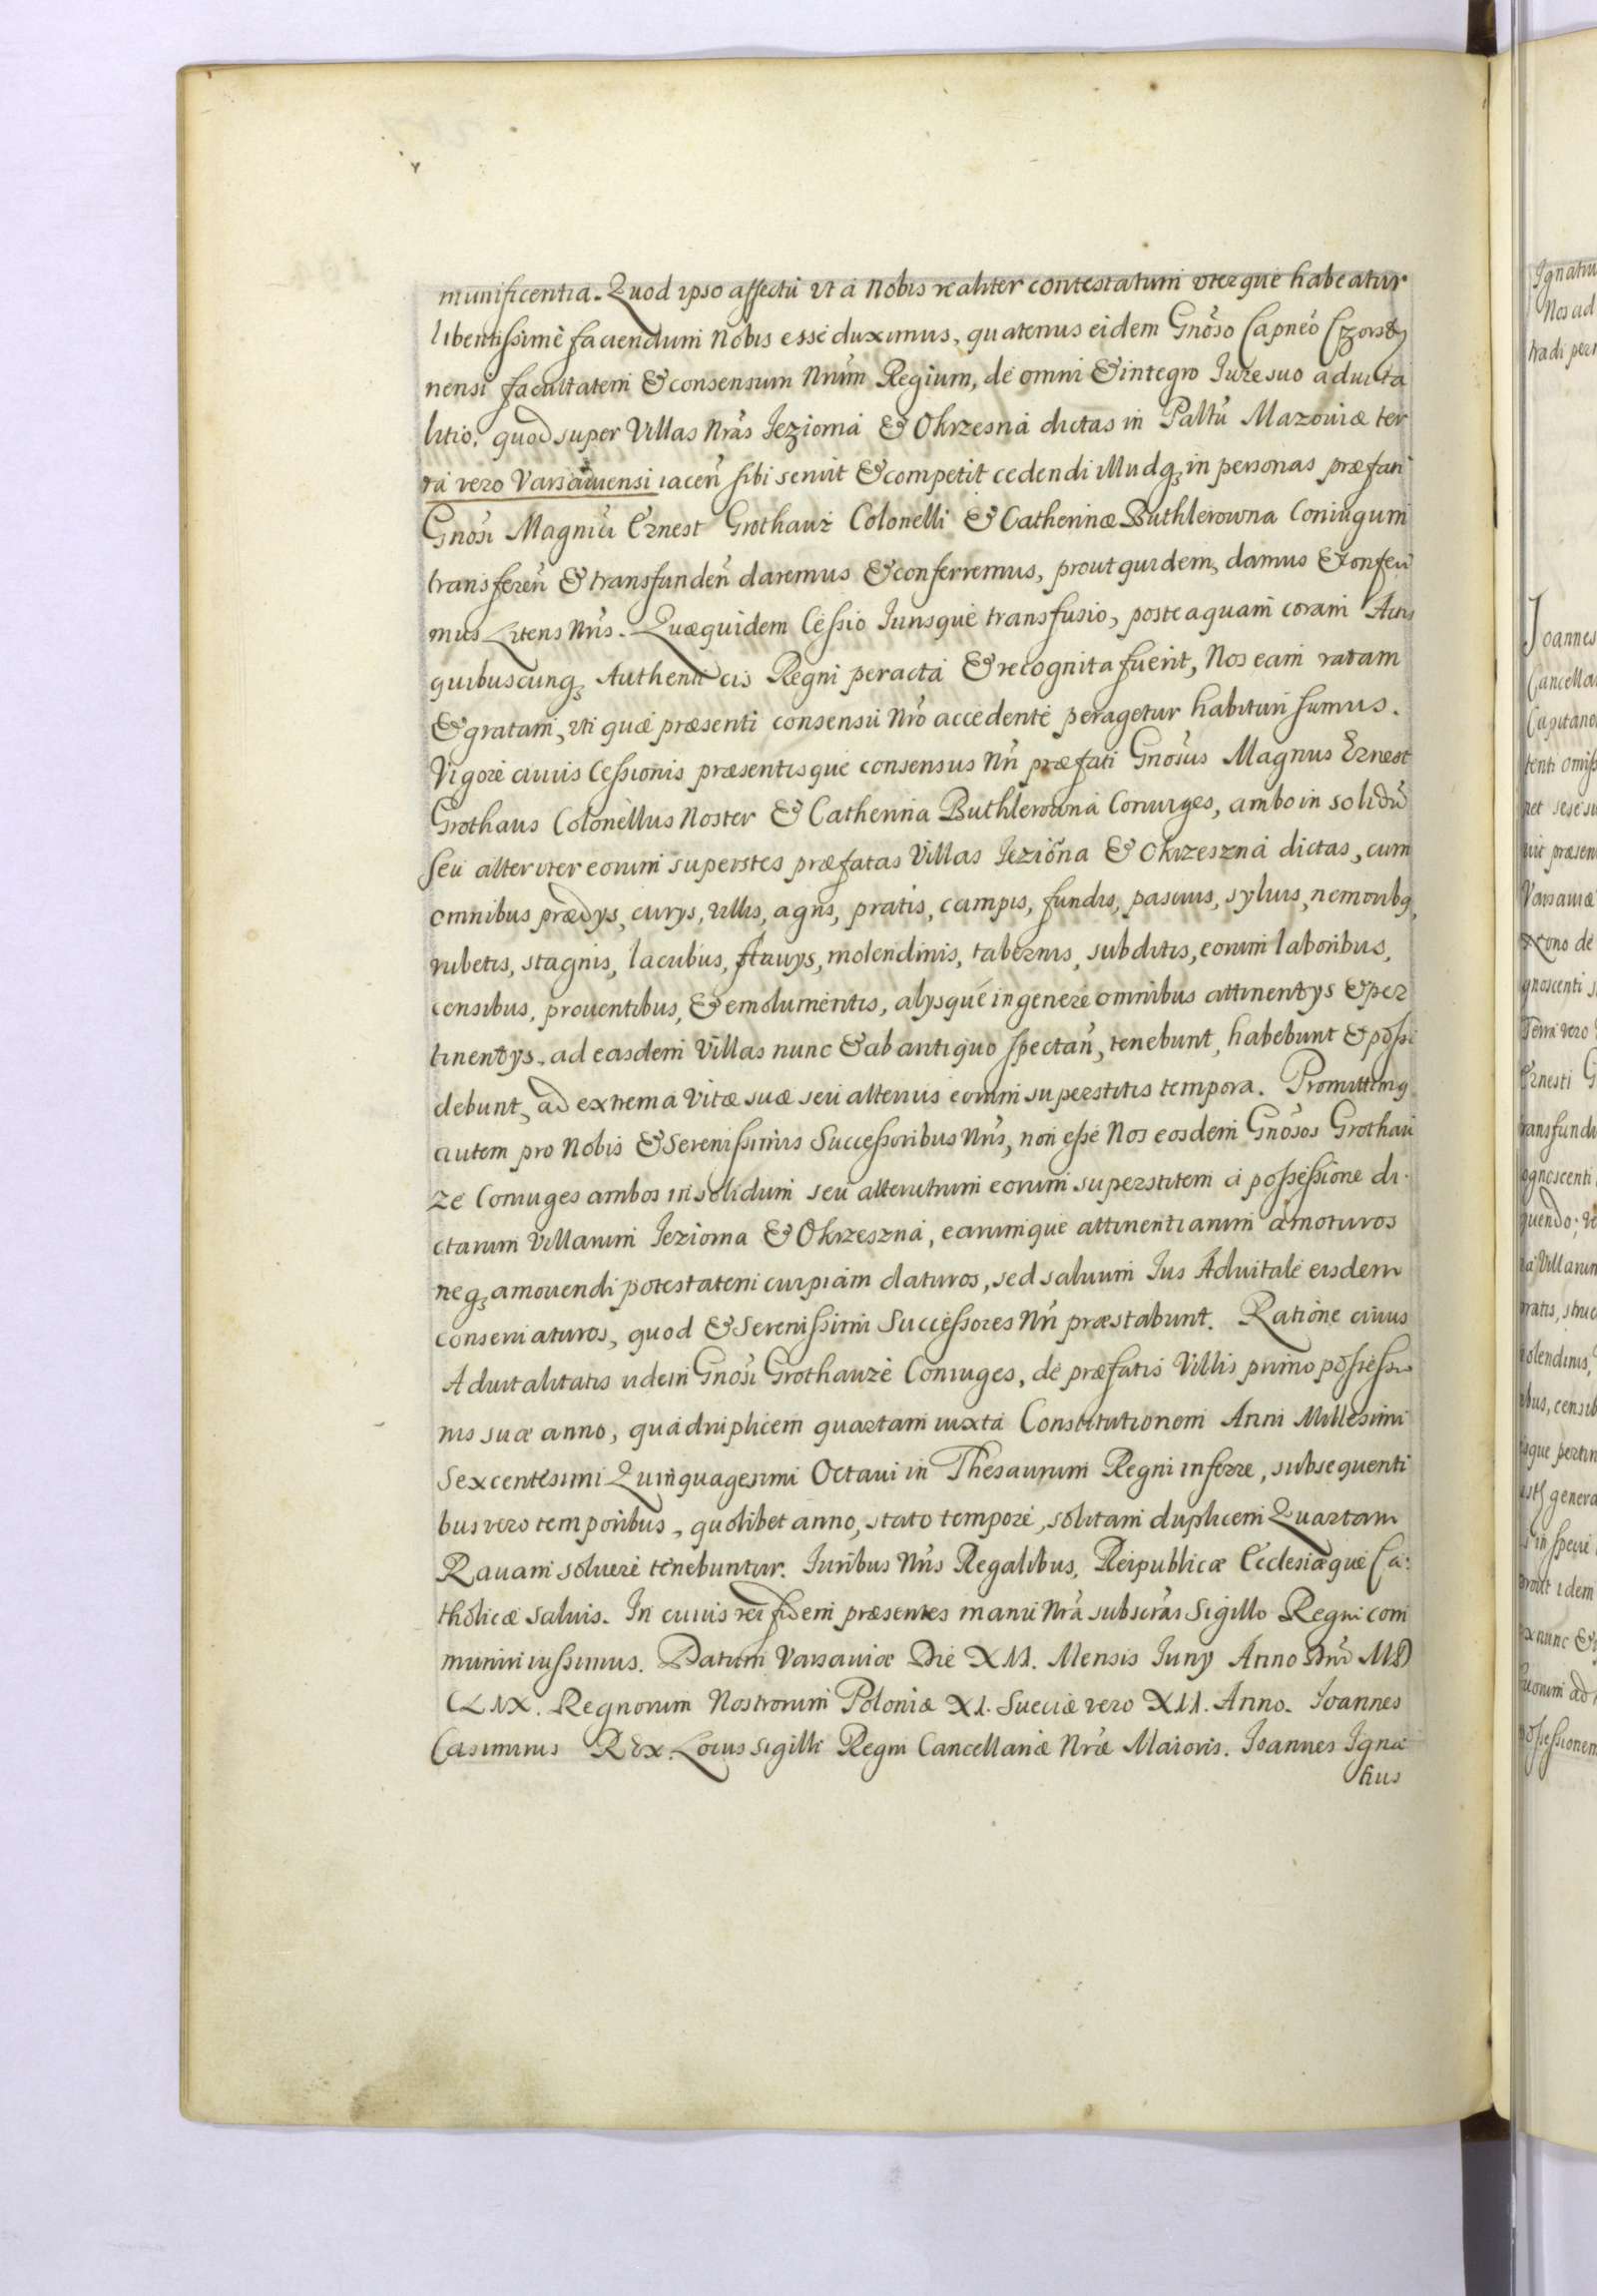 munificentia. Quod ipso affectu ut a Nobis realiter contestatum uterque habeatur
libentissime faciendum Nobis esse duximus, quatenus eidem Gnoso Capneo
nensi facultatem & consensum Nrum Regium, de omni & integro Iure suo advita
litio, quod super Villas Nras Jeziorna & Okrzesna dictas in Paltu Mazoviæ ter
ra vero Varsaviensi iacen sibi servit & competit cedendi illudq, in personas præfati
Gnosi Magnui Ernest Grothauz Colonelli & Catherinæ Buthlerowna Coniugum
transferen & transfunden daremus & conferremus, prout quidem, damus & conferi
mus Literis Nris. Quæquidem Cessio Iurisque transfusio, posteaquam coram Actis
quibuscunq, Authenticis Regni peracta & recognita fuerit, Nos eam ratam
& gratam, uti quæ præsenti consensu Nro accedente peragetur habituri sumus.
Vigore cuius Cessionis præsentisque consensus Nri præfati Gnosus Magnus Ernest
Grothaus Colonellus Noster & Catherina Buthlerowna Coniuges, ambo in solidu
seu alteruter eorum superstes præfatas Villas Jeziorna & Okrzeszna dictas, cum
omnibus prædys, curys, villis, agris, pratis, campis, fundis, pascuis, sylvis, nemoribq,
rubetis, stagnis, lacubus, fluvys, molendinis, tabernis, subditis, eorum laboribus,
censibus, proventibus, & emolumentis, alysque in genere omnibus attinentys & per
tinentys, ad easdem Villas nunc & ab antiquo spectan, tenebunt, habebunt & possi
debunt, ad extrema Vitæ suæ seu alterius eorum superstitis tempora. Promittimq
autem pro Nobis & Serenissimis Successoribus Nris, non esse Nos eosdem Gnosos Grothau
ze Coniuges ambos in solidum seu alterutrum eorum superstitem a possessione di
ctarum Villarum Jeziorna & Okrzeszna, earumque attinentiarum amoturos
neq, amovendi potestatem cuipiam daturos, sed salvum Ius Advitale eisdem
conservaturos, quod & Serenissimi Successores Nri præstabunt. Ratione cuius
Advitalitatis iidem Gnosi Grothauze Coniuges, de præfatis Villis primo possessio
nis suæ anno, quadruplicem quartam iuxta Constitutionem Anni Millesimi
Sexcentesimi Quinquagesimi Octavi in Thesaurum Regni inferre, subsequenti
bus vero temporibus, quolibet anno, stato tempore, solitam duplicem Quartam
Ravam solvere tenebuntur. Iuribus Nris Regalibus, Reipublicæ Ecclesiæque Ca:
tholicæ salvis. In cuius rei fidem præsentes manu Nra subscras Sigillo Regni com
muniri iussimus. Datum Varsaviæ Die XVI. Mensis Iuny Anno Dni MD
CLIX. Regnorum Nostrorum Poloniæ XI. Sueciæ vero XII. Anno. Ioannes
Casimirus REx. Locus Sigilli Regni Cancellariæ Nræ Maioris. Ioannes Igna
tius